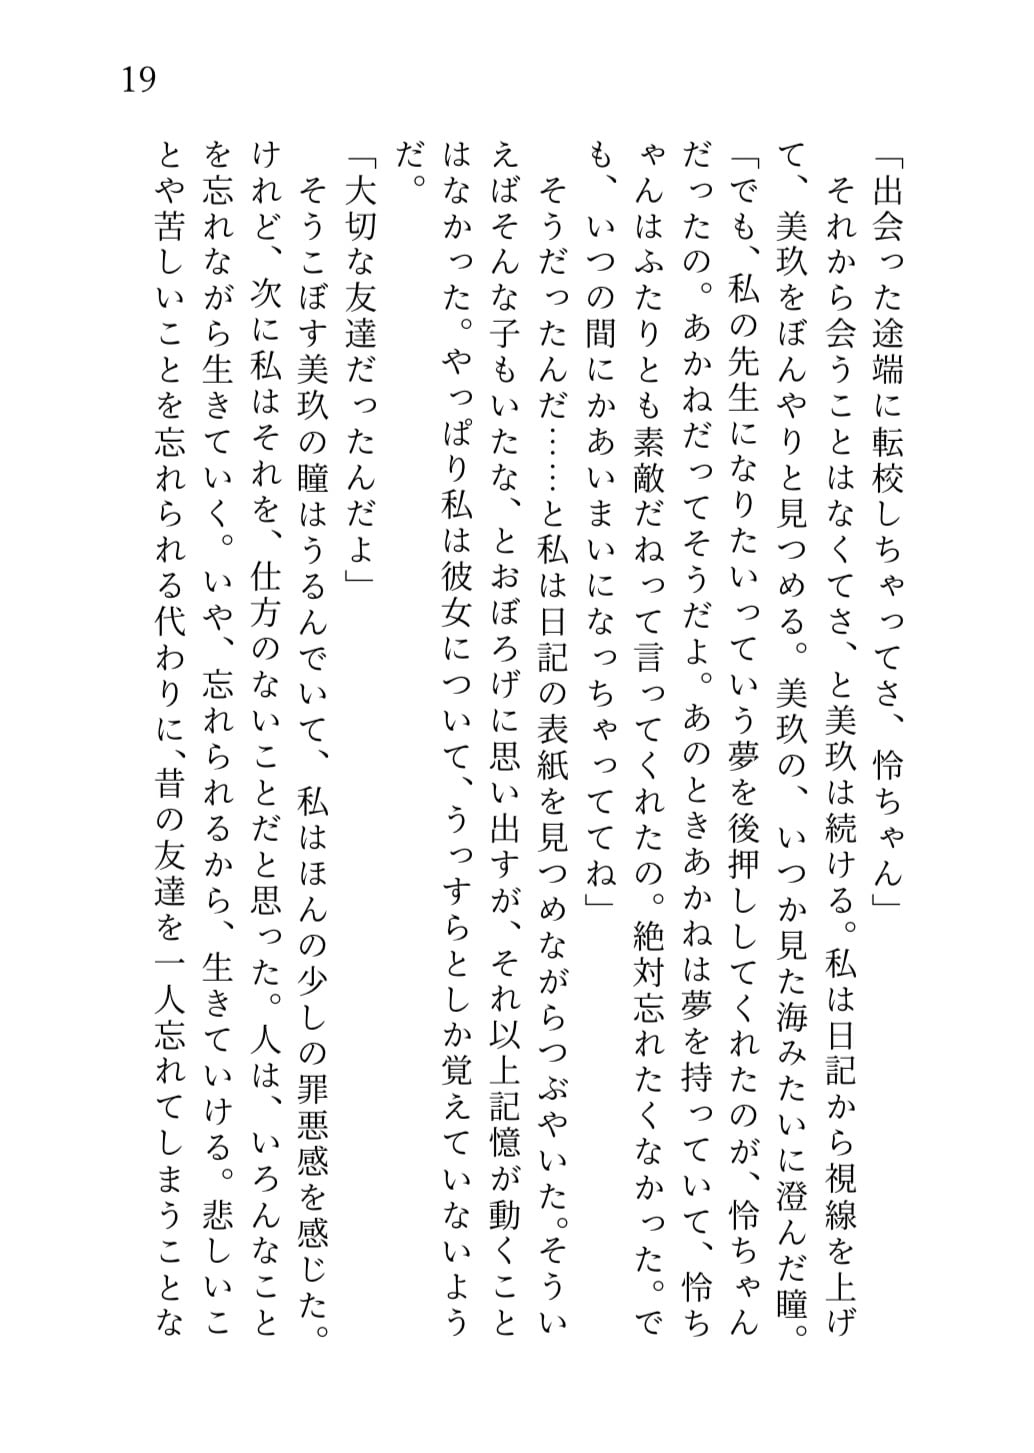 19
「出会った途端に転校しちゃってさ、怜ちゃん」
　それから会うことはなくてさ、と美玖は続ける。私は日記から視線を上げ
て、美玖をぼんやりと見つめる。美玖の、いつか見た海みたいに澄んだ瞳。
「でも、私の先生になりたいっていう夢を後押ししてくれたのが、怜ちゃん
だったの。あかねだってそうだよ。あのときあかねは夢を持っていて、怜ち
ゃんはふたりとも素敵だねって言ってくれたの。絶対忘れたくなかった。で
も、いつの間にかあいまいになっちゃっててね」
　そうだったんだ……と私は日記の表紙を見つめながらつぶやいた。そうい
えばそんな子もいたな、とおぼろげに思い出すが、それ以上記憶が動くこと
はなかった。やっぱり私は彼女について、うっすらとしか覚えていないよう
だ。
「大切な友達だったんだよ」
　そうこぼす美玖の瞳はうるんでいて、私はほんの少しの罪悪感を感じた。
けれど、次に私はそれを、仕方のないことだと思った。人は、いろんなこと
を忘れながら生きていく。いや、忘れられるから、生きていける。悲しいこ
とや苦しいことを忘れられる代わりに、昔の友達を一人忘れてしまうことな